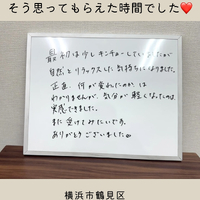 そう思ってもらえた時間でした❤
最初は少しキンチョーしていましたが
自然とリラックスした気持ちになりました。
正直、何が変わったのかは
わかりませんが、気分が軽くなったのは
実感できました。
また受けてみたいです。
ありがとうございました。
横浜市鶴見区